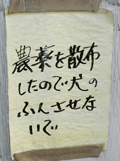 農薬を散布
したので犬の
ふんさせな
いで